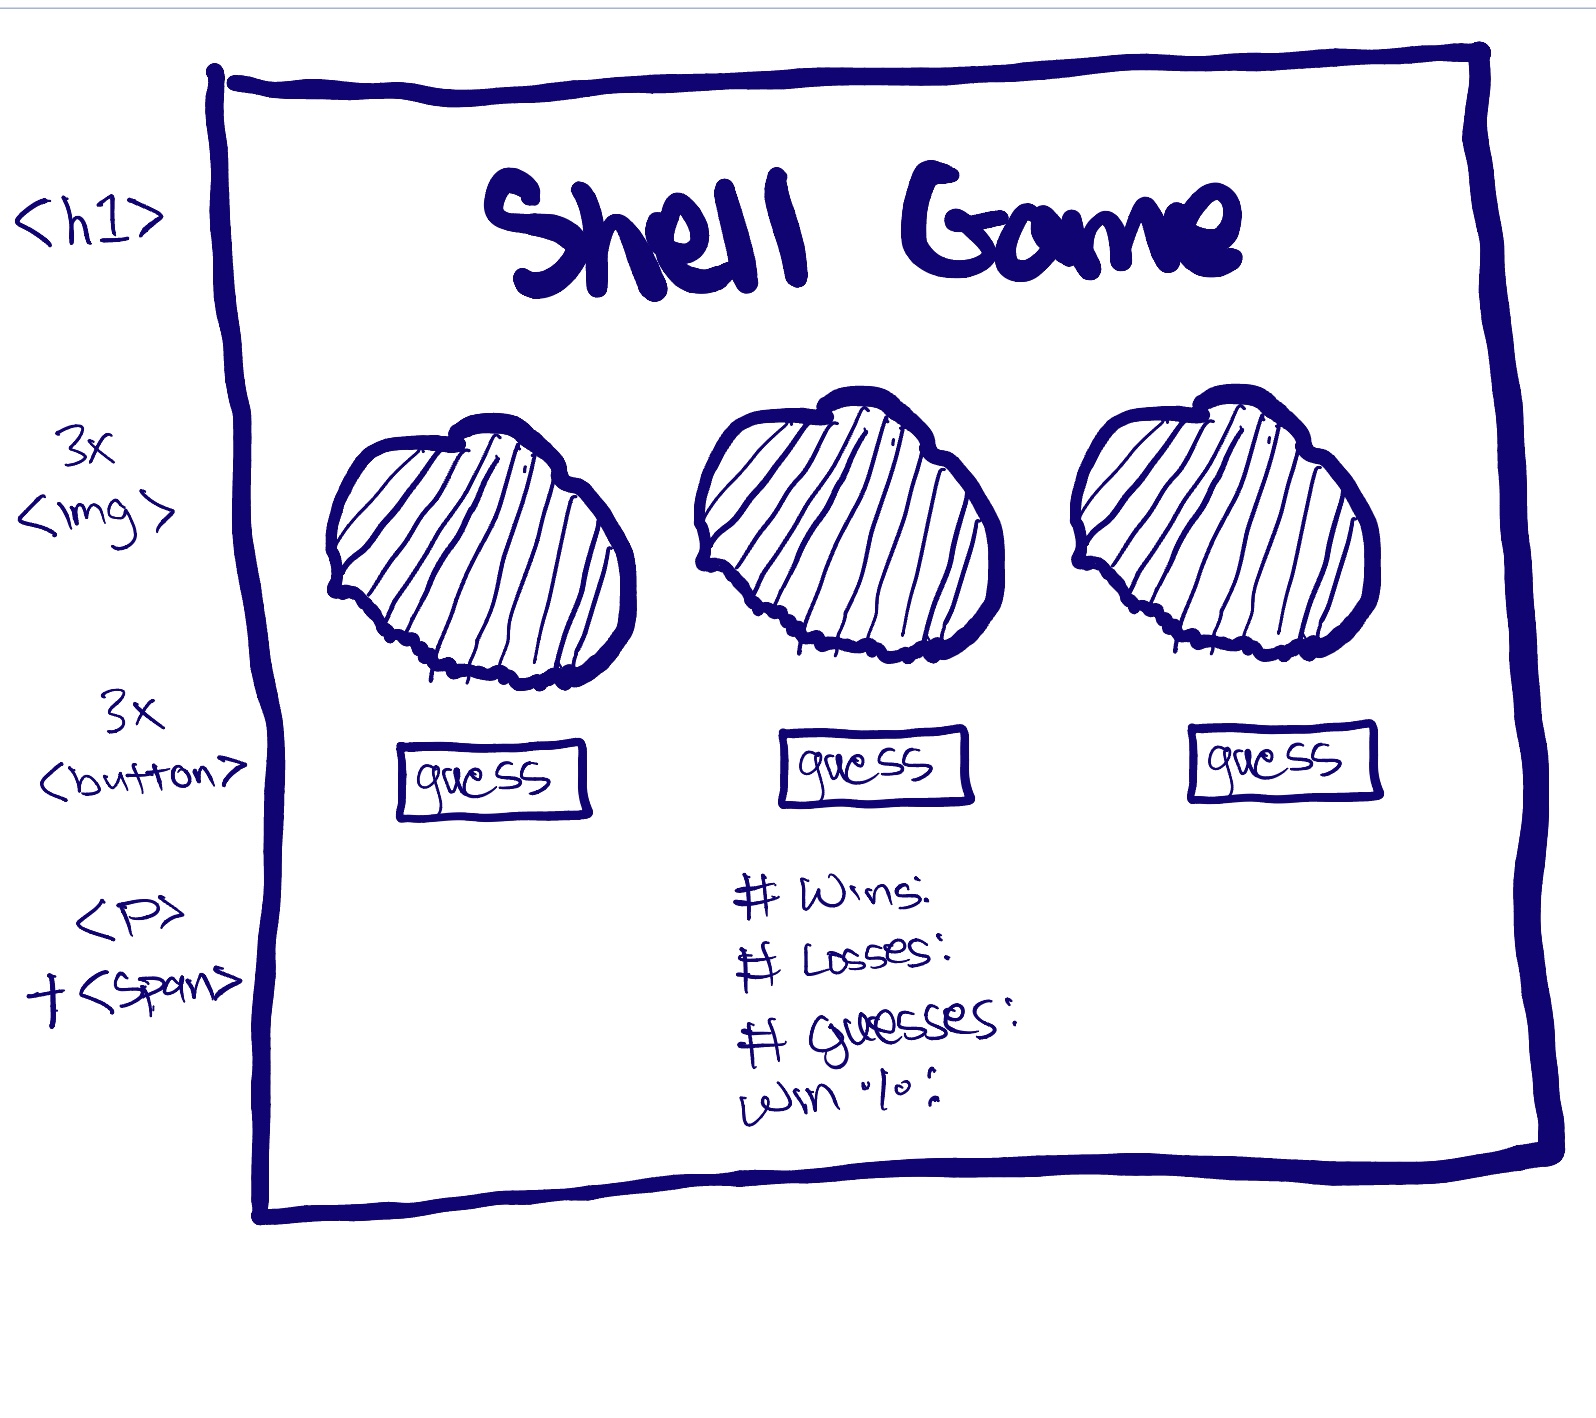 Shell Game
<h1>
3x
<img>
3x
<button>
guess
guess
guess
<P>
+ <span>
# Wins:
# Losses:
# guesses:
Win %: